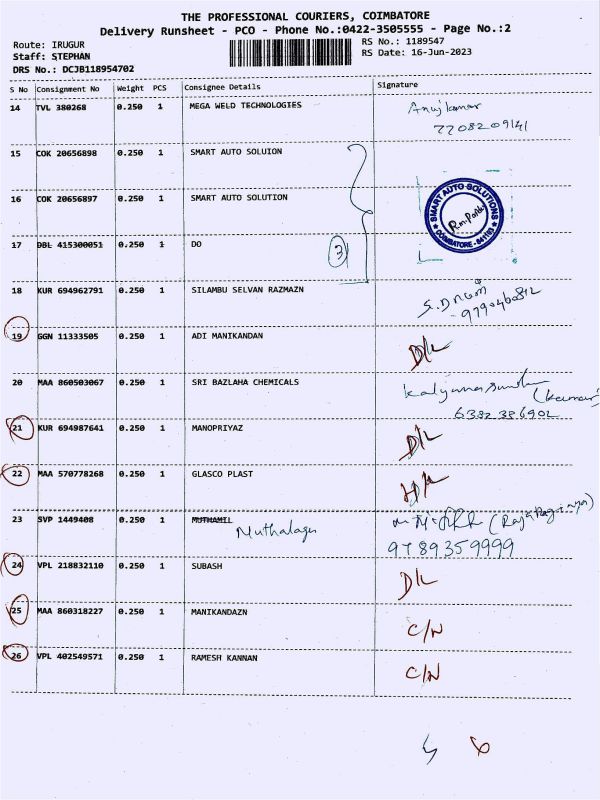 THE PROFESSIONAL COURIERS, COIMBATORE
Delivery Runsheet - PCO - Phone No.:0422-3505555 - Page No.:2
Route: IRUGUR RS No.: 1189547
Staff: STEPHAN RS Date: 16-Jun-2023
DRS No.: DCJB118954702
S No Consignment No Weight PCS Consignee Details Signature
14 TVL 380268 0.250 1 MEGA WELD TECHNOLOGIES Anujkumar
7708209141
15 COK 20656898 0.250 1 SMART AUTO SOLUION
16 COK 20656897 0.250 1 SMART AUTO SOLUTION
SMART AUTO SOLUTIONS
COIMBATORE
17 DBL 415300051 0.250 1 DO
3
18 KUR 694962791 0.250 1 SILAMBU SELVAN RAZMAZN
19 GGN 11333505 0.250 1 ADI MANIKANDAN D/L
20 MAA 860503067 0.250 1 SRI BAZLAHA CHEMICALS
6382386902
21 KUR 694987641 0.250 1 MANOPRIYAZ D/L
22 MAA 570778268 0.250 1 GLASCO PLAST
23 SVP 1449408 0.250 1 MUTHAMIL
Muthalagu
9789359999
24 VPL 218832110 0.250 1 SUBASH D/L
25 MAA 860318227 0.250 1 MANIKANDAZN C/N
26 VPL 402549571 0.250 1 RAMESH KANNAN C/N